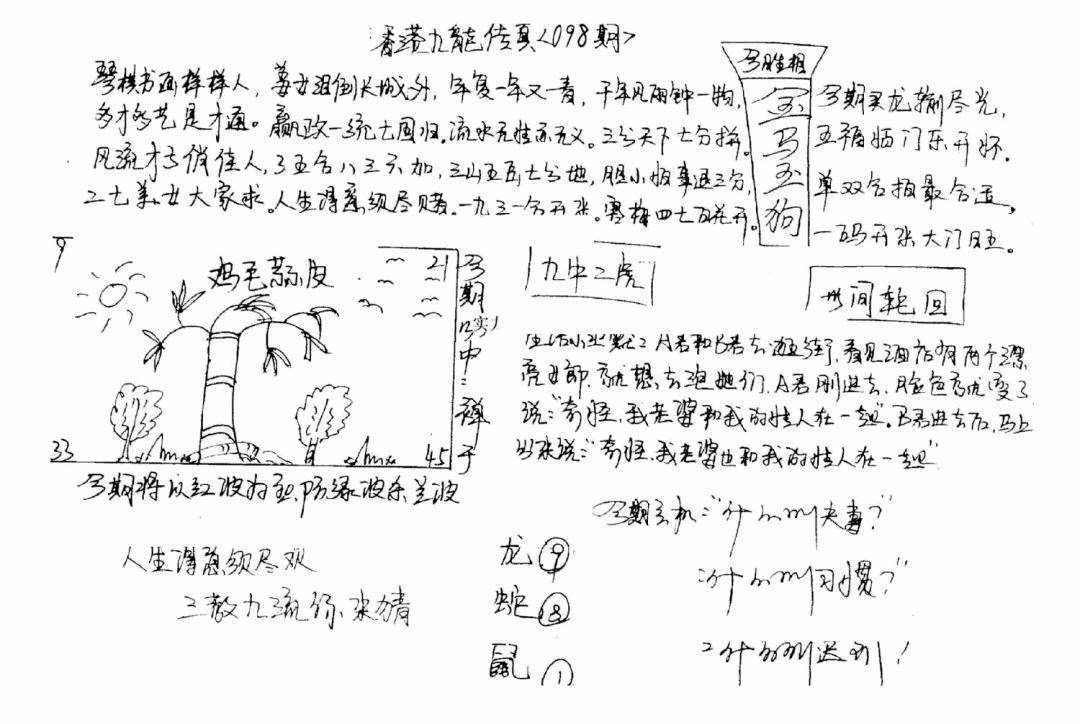 香港九龍传真<098期>
琴棋书画样样人，姜女泪倒长城外，年复一年又一春，千年风雨钟一物，
多才多艺是才通。嬴政一统七国归。流水无性亦无义。三分天下七分拼。
风流才子俏佳人，三五合八三六加，三山五岳七分地，胆小怕事退三分，
二七美女大家求。人生得意须尽赌。一九三一合开张。寒梅四七百花开。
今期买龙输尽光，
五福临门乐开怀。
单双合拍最合适，
一码开张大门旺。
鸡毛蒜皮
9
21
33
45
今期将以红波为主，防绿波杀兰波
九牛二虎
世间轮回
A君和B君去逛街，看见酒店有两个漂
亮女郎，就想去泡她们，A君刚进去，脸色就变了
说："奇怪，我老婆和我的情人在一起"。B君进去后，马上
出来说："奇怪，我老婆也和我的情人在一起"
今期玄机："什么叫夫妻？"
什么叫习惯？"
什么叫迟到！
人生得意须尽欢
三教九流
龙 9
蛇 8
鼠 1